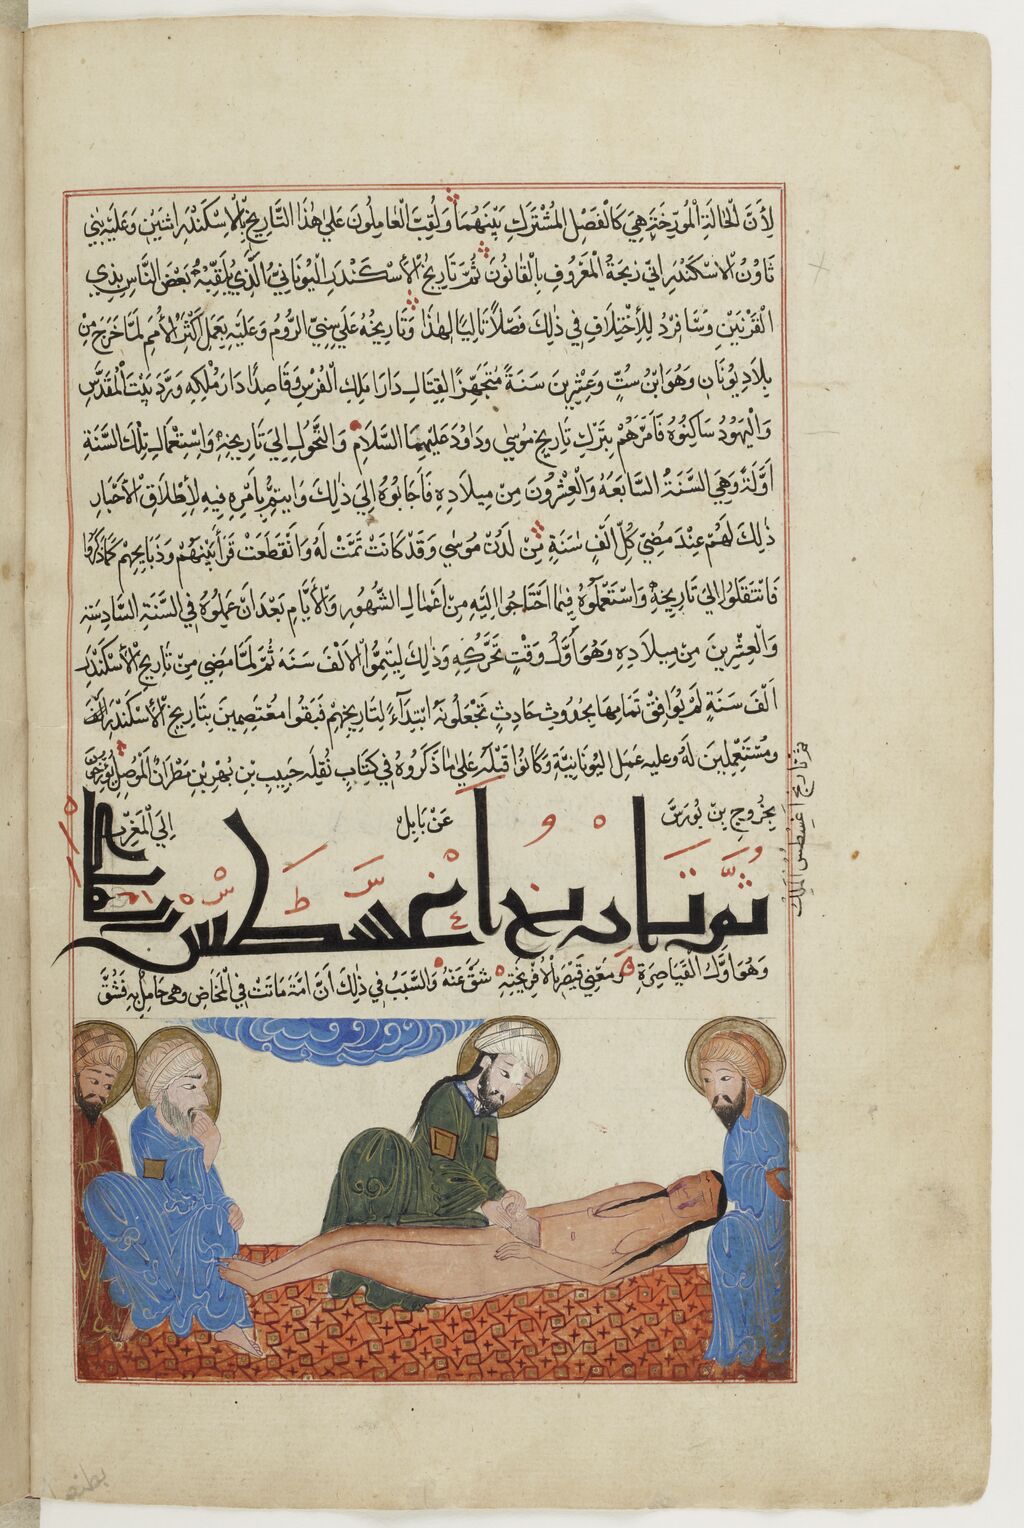 لِأَنَّ الْحَالَةَ الْمُورِّخَةَ هِيَ كَالْفَصْلِ الْمُشْتَرَكِ بَيْنَهُمَا وَلُقِبَ الْعَامِلُونَ عَلَى هٰذَا التَّارِيخِ بِالْاِسْكَنْدَرَانِيِّينَ وَعَلَيْهِ بَنَى
ثَاوُنُ الْاِسْكَنْدَرَانِي زِيجَهُ الْمَعْرُوفِ بِالْقَانُونِ ثُمَّ تَارِيخُ الْأَسْكَنْدَرِ الْيُونَانِيِّ الَّذِي يُلَقِّبُهُ بَعْضُ النَّاسِ بِذِي
الْقَرْنَيْنِ وَسَافَرِدُ لِلْأِخْتِلَافِ فِي ذٰلِكَ فَصْلًا تَالِيًا لِهٰذَا وَتَارِيخُهُ عَلَى سِنِيِّ الرُّومِ وَعَلَيْهِ يَعْمَلُ اَكْثَرُ الْأُمَمِ لَمَّا خَرَجَ مِنْ
بِلَادِ يُونَانِ وَهُوَ ابْنُ سِتٍّ وَعِشْرِينَ سَنَةً مُتَجَهِّزًا لِقِتَالِ دَارَا مَلِكِ الْفُرْسِ وَقَاصِدًا دَارَ مُلْكِهِ وَرَدَ بَيْتَ الْمَقْدِسِ
وَالْيَهُودُ سَاكِنُوهُ فَأَمَرَهُمْ بِتَرْكِ تَارِيخِ مُوسَى وَدَاوُدَ عَلَيْهِمَا السَّلَامُ وَالتَّحَوُّلِ اِلَى تَارِيخِهِ وَاسْتِعْمَالِ تِلْكَ السَّنَةِ
اَوَّلَهُ وَهِيَ السَّنَةُ السَّابِعَةُ وَالْعِشْرُونَ مِنْ مِيلَادِهِ فَأَجَابُوهُ اِلَى ذٰلِكَ وَايتَمَرُوا بِأَمْرِهِ فِيهِ لِأِطْلَاقِ الْأَحْبَارِ
ذٰلِكَ لَهُمْ عِنْدَ مُضِيِّ كُلِّ اَلْفِ سَنَةٍ مِنْ لَدُنْ مُوسَى وَقَدْ كَانَتْ تَمَّتْ لَهُ وَانْقَطَعَتْ قَرَابِينُهُمْ وَذَبَايِحُهُمْ كَمَا ذَكَرُوا
فَانْتَقَلُوا اِلَى تَارِيخِهِ وَاسْتَعْمَلُوهُ فِيمَا احْتَاجُوا اِلَيْهِ مِنْ اَعْمَالِ الشُّهُورِ وَالْأَيَّامِ بَعْدَ اَنْ عَمِلُوهُ فِي السَّنَةِ السَّادِسَةِ
وَالْعِشْرِينَ مِنْ مِيلَادِهِ وَهُوَ اَوَّلُ وَقْتِ تَحَرُّكِهِ وَذٰلِكَ لِيُتِمُّوا الْأَلْفَ سَنَةٍ ثُمَّ لَمَّا مَضَى مِنْ تَارِيخِ الْأَسْكَنْدَرِ
اَلْفُ سَنَةٍ لَمْ يُوَافِقْ تَمَامَهَا بِحُدُوثِ حَادِثٍ تَجْعَلُونَهُ ابْتِدَاءً لِتَارِيخِهِمْ فَبَقُوا مُعْتَصِمِينَ بِتَارِيخِ الْأَسْكَنْدَرِ
وَمُسْتَعْمِلِينَ لَهُ وَعليه عَمَلُ الْيُونَانِيَّةِ وَكَانُوا قَبْلَهُ عَلَى مَا ذَكَرُوهُ فِي كِتَابٍ نَقَلَهُ حَبِيبُ بْنُ بَهْرِيزَ مَطْرَانُ الْمَوْصِلِ يُؤَرِّخُونَ
بِخُرُوجِ بن يُورَسَ عَنْ بَابِلَ اِلَى الْمَغْرِبِ
ثُمَّ تَارِيخُ اُغُسْطُسَ الْمَلِكِ
وَهُوَ اَوَّلُ الْقَيَاصِرَةِ وَمَعْنَى قَيْصَرَ بِالْأَفْرَنْجِيَّةِ شُقَّ عَنْهُ وَالسَّبَبُ فِي ذٰلِكَ اَنَّ اُمَّهُ مَاتَتْ فِي الْمَخَاضِ وَهِيَ حَامِلٌ بِهِ فَشُقَّ
ثم تاريخ اغسطس الملك
بطنها